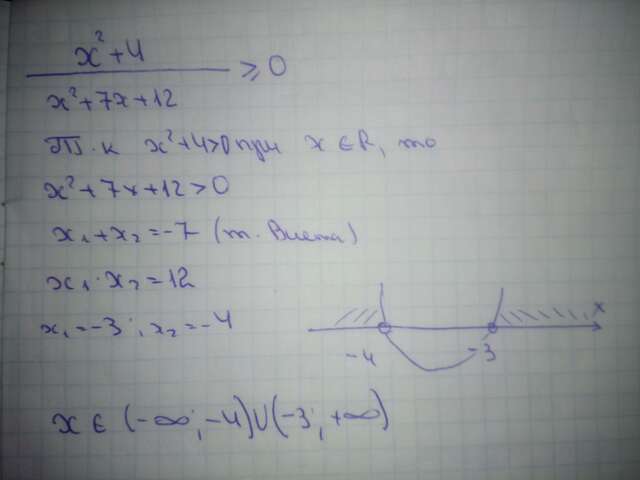 x²+4
x²+7x+12 ≥ 0
Т.к x²+4>0 при x ∈ R, то
x²+7x+12>0
x₁+x₂=-7 (т. Виета)
x₁·x₂=12
x₁=-3; x₂=-4
x
-4 -3
x ∈ (-∞; -4)∪(-3; +∞)